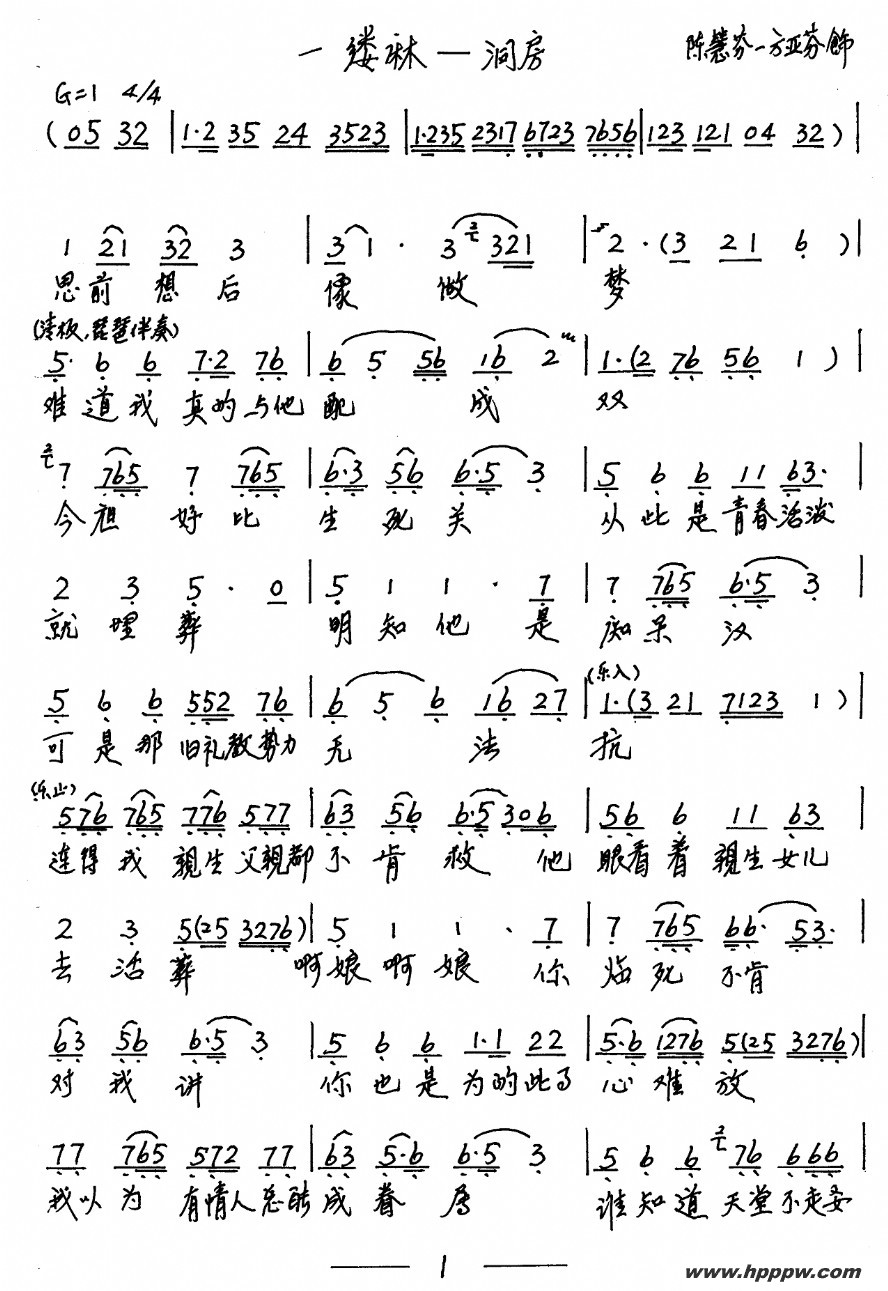 一缕麻—洞房 陈慧芬—方亚芬饰
G=1 4/4
(05 32 | 1·2 35 24 3523 | 1·235 2317 6723 7656 | 123 121 04 32) |
1 21 32 3 | 3 1· 3 321 | 2·(3 21 6) |
思前想后 像做 梦
(清板,琵琶伴奏)
5· 6 6 7·2 76 | 6 5 56 16 2 | 1·(2 76 56 1) |
难道我真的与他配 成 双
7 765 7 765 | 6·3 56 6·5 3 | 5 6 6 11 63· |
今夜好比 生死关 从此是青春活泼
2 3 5· 0 | 5 1 1· 7 | 7 765 6·5 3 |
就埋葬 明知他是 痴呆汉
5 6 6 552 76 | 6 5 6 16 27 | 1·(3 21 7123 1) |
(乐入)
可是那旧礼教势力无 法 抗
(乐止)
576 765 776 577 | 63 56 6·5 306 | 56 6 11 63 |
连得我亲生父亲都不肯救 他 眼看着亲生女儿
2 3 5(25 3276) | 5 1 1· 7 | 7 765 66· 53· |
去活葬 啊娘啊娘你 临死不肯
63 56 6·5 3 | 5 6 6 1·1 22 | 5·6 1276 5(25 3276) |
对我讲 你也是为的此事 心难放
77 765 572 77 | 63 5·6 6·5 3 | 5 6 6 76 666 |
我以为 有情人总能成眷属 谁知道天堂不走要
1
www.hpppw.com